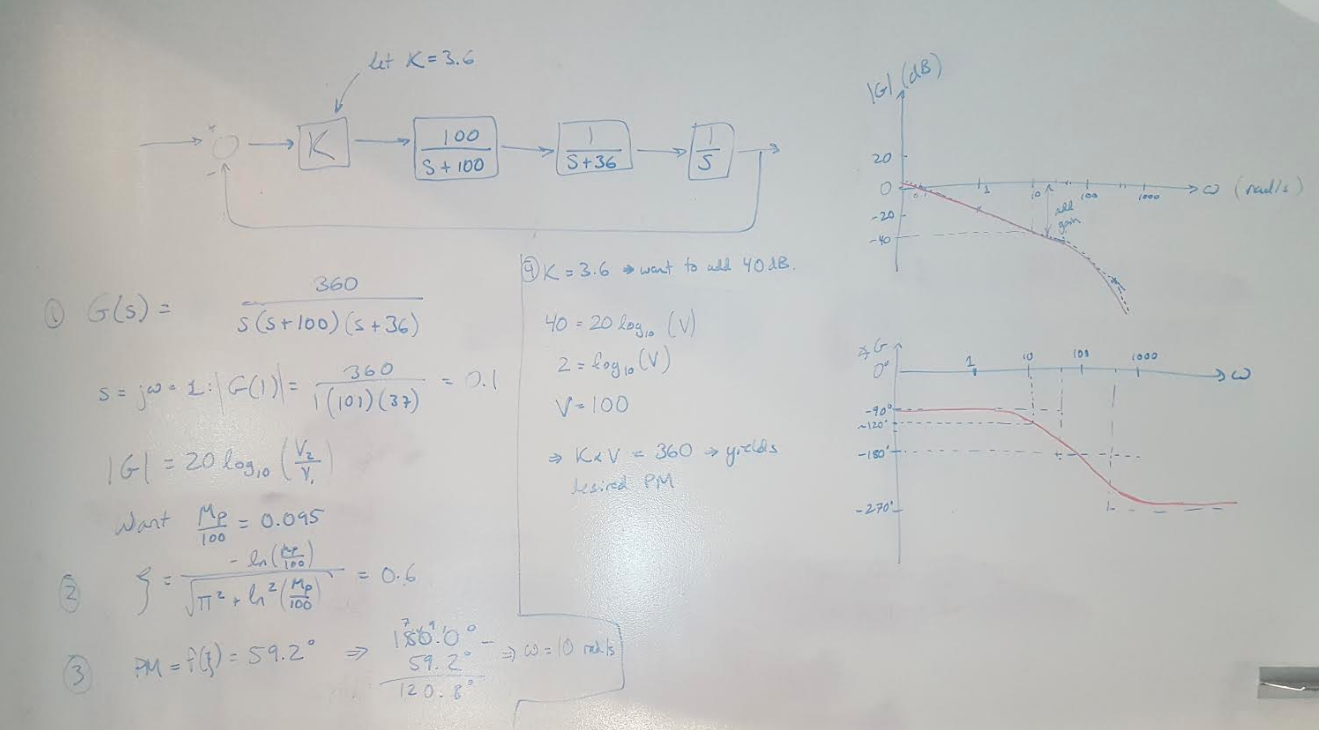 let K = 3.6
+
-
K
100
s + 100
1
s + 36
1
s
① G(s) = 360
s(s+100)(s+36)
s = jω = 1: |G(1)| = 360 = 0.1
1(101)(37)
|G| = 20 log₁₀ (V₂/V₁)
Want Mp/100 = 0.095
② ζ = -ln(Mp/100) = 0.6
√π² + ln²(Mp/100)
③ PM = f(ζ) = 59.2° ⇒ 180.0° - ⇒ ω = 10 rad/s
59.2°
120.8°
④ K = 3.6 → want to add 40 dB.
40 = 20 log₁₀ (V)
2 = log₁₀ (V)
V = 100
⇒ K x V = 360 → yields
desired PM
|G| (dB)
20
0
-20
-40
0.1
1
10
100
1000
ω (rad/s)
add
gain
∡G
0°
-90°
~120°
-180°
-270°
1
10
100
1000
ω